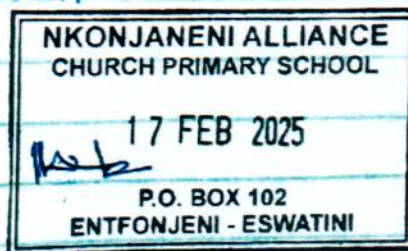 NKONJANENI ALLIANCE
CHURCH PRIMARY SCHOOL
17 FEB 2025
P.O. BOX 102
ENTFONJENI - ESWATINI